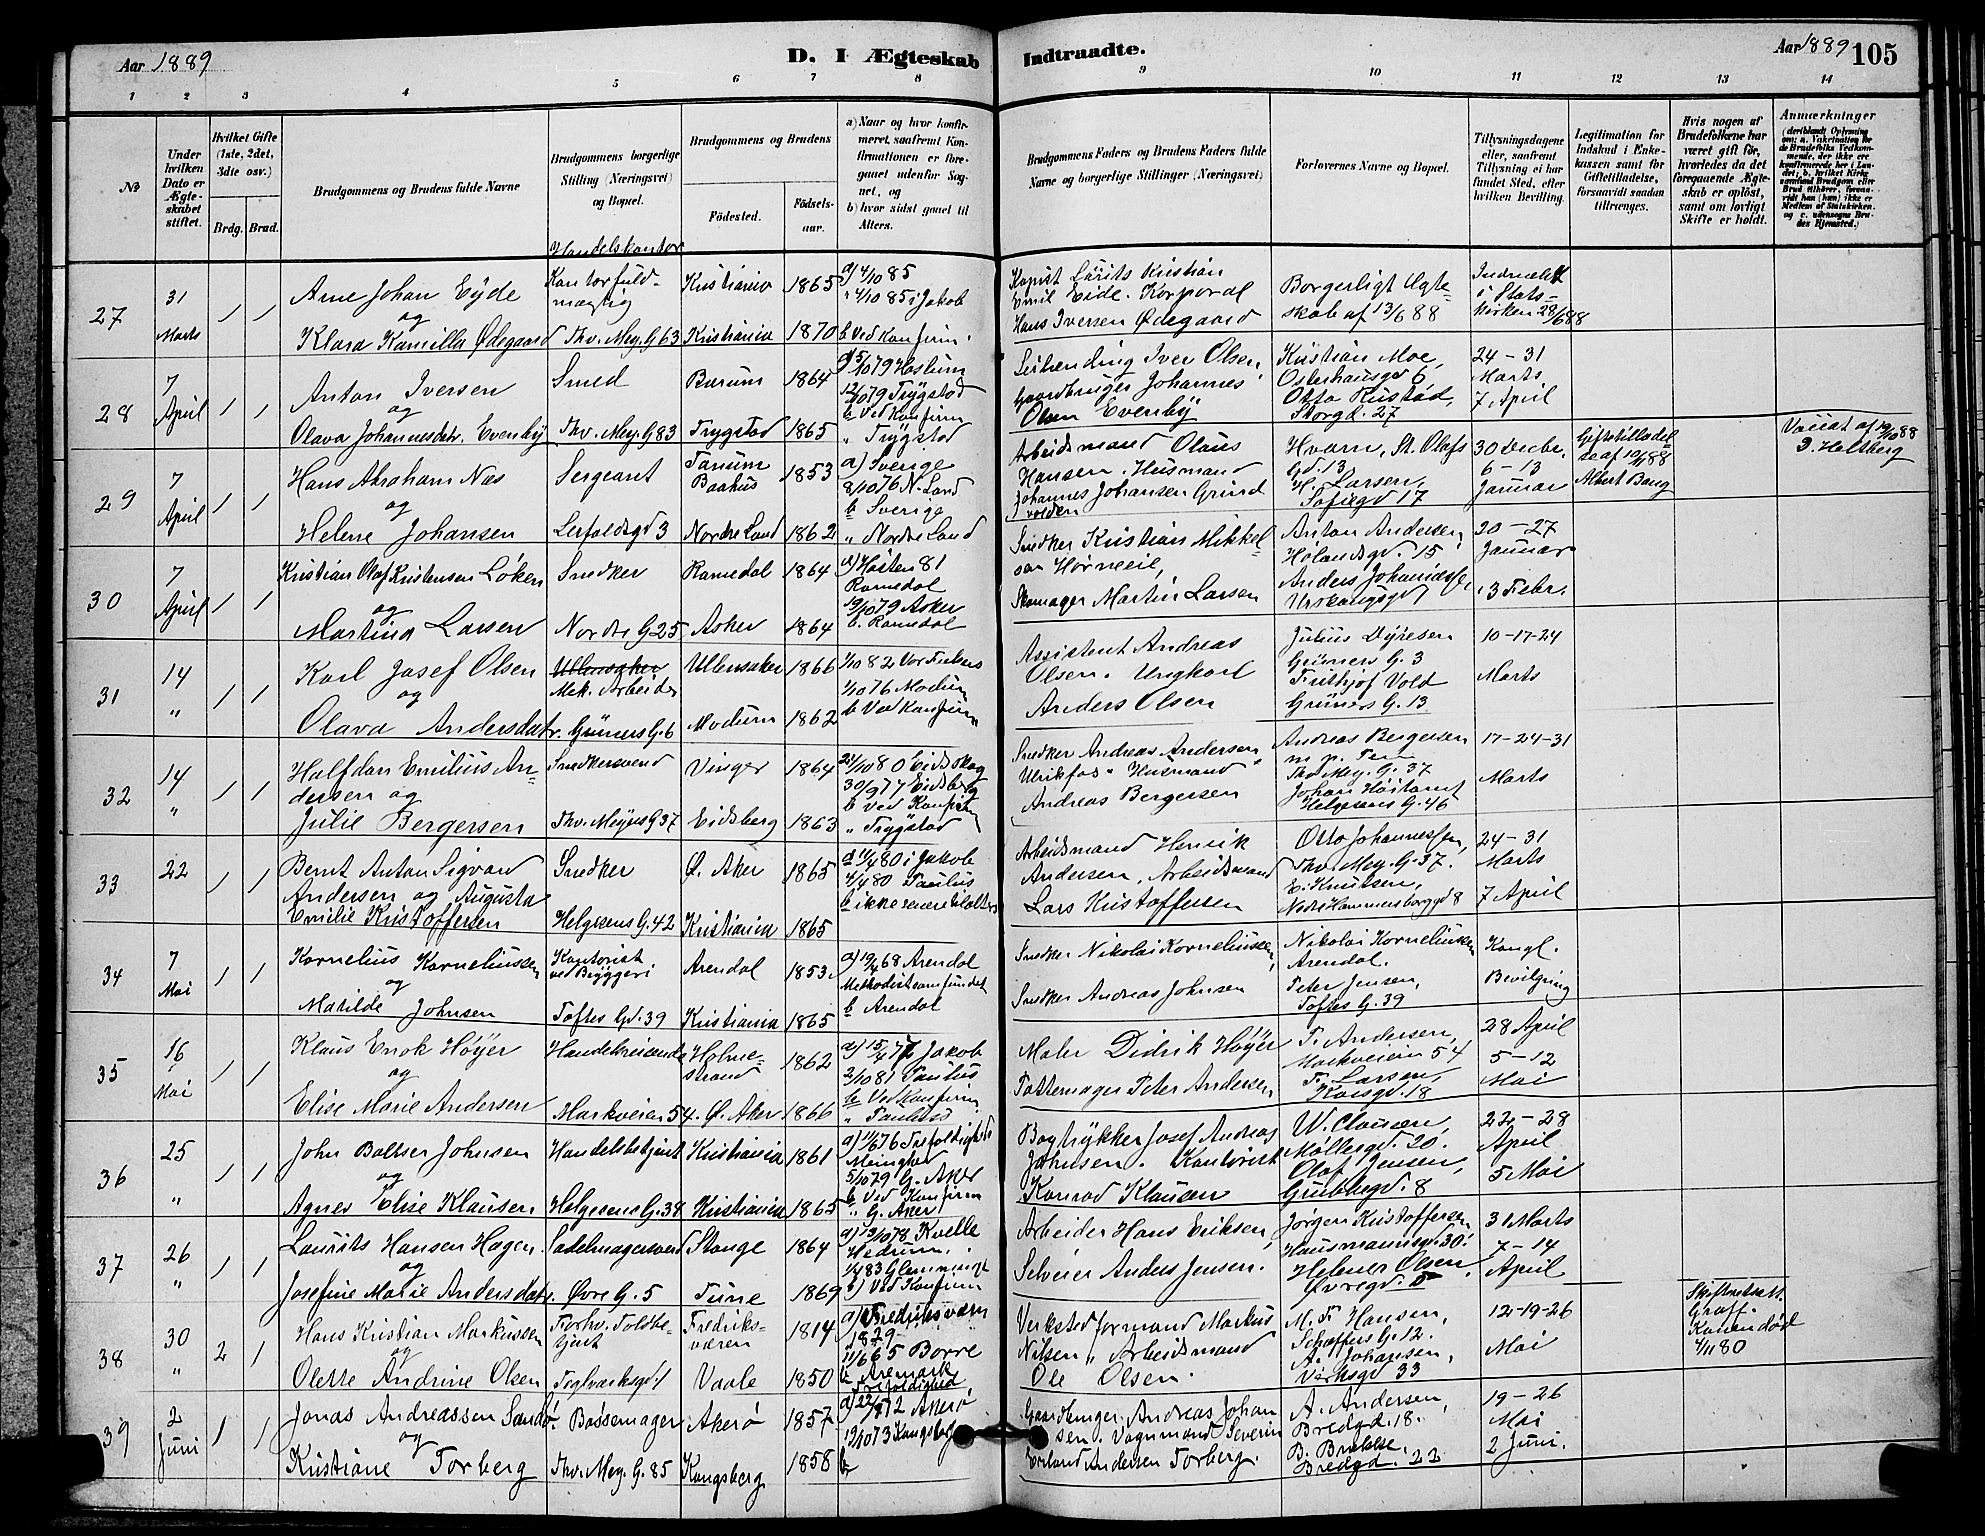 Aar 1889
D. I Ægteskab
Indtraadte.
Aar 1889 105
1 2 3 4 5 6 7 8 9 10 11 12 13 14
No
Under hvilken Dato er Ægteskabet stiftet.
Hvilket Gifte (1ste, 2det, 3die osv.)
Brdg. Brud.
Brudgommens og Brudens fulde Navne
Brudgommens borgerlige Stilling (Næringsvei) og Bopæl.
Brudgommens og Brudens
Födested. Födsels-aar.
a) Naar og hvor konfirmeret, saafremt Konfirmationen er foregaaet udenfor Sognet, og
b) hvor sidst gaaet til Alters.
Brudgommens Faders og Brudens Faders fulde Navne og borgerlige Stillinger (Næringsvei)
Forlovernes Navne og Bopæl.
Tillysningsdagene eller, saafremt Tillysning ei har fundet Sted, efter hvilken Bevilling.
Legitimation for Indskud i Enkekassen samt for Giftetilladelse, forsaavidt saadan tiltrænges.
Hvis nogen af Brudefolkene har været gift før, hvorledes da det foregaaende Ægteskab er oplöst, samt om lovligt Skifte er holdt.
Anmærkninger
27
31 Marts
1 1
Arne Johan Eyde
og
Klara Kamilla Ødegaard
Handelskontor
Kontorfuld-
mægtig
Thv. Mey. G 63
Kristiania 1865
Kristiania 1870
a) 4/10 85
" 4/10 85 i Jakob
b Ved Konfirm.
Kopist Lauits Kristian
Emil Eide. Korporal
Hans Iversen Ødegaard
Borgerligt Ægte-
skab af 13/6 88
Indmeldt
i Stats-
kirken 28/6 88
28
7 April
1 1
Anton Iversen
og
Olava Johannesdatr. Evenby
Smed
Thv. Mey. G 83
Bærum 1864
Trygstad 1865
a 5/10 79 Haslum
12/10 79 Trygstad
b Ved Konfirm
" Trygstad
Iver Olsen,
Gaardbruger Johannes
Olsen Evenby
Kristian Moe,
Osterhausgd 6
Otto Rustad,
Storgd. 27
24 - 31
Marts
7 April
29
7 April
1 1
Hans Abraham Næs
og
Helene Johansen
Sergeant
Lerfaldsgd 3
Tanum
Baahus 1853
Nordre Land 1862
a) Sverige
8/10 76 N. Land
b Sverige
" Nordre Land
Arbeidsmand Olaus
Hansen. Husmand
Johannes Johansen Grind
volden
Hvarn, St. Olafs
Gd. 13
H. Larsen,
Sofiegd 17
30 Decbr.
6 - 13
Januar
Giftetilladel
se af 10/11 88
Albert Bang
Vaccat af 19/10 88
J. Holtsberg
30
7 April
1 1
Kristian Olaf Kristensen Løken
og
Martina Larsen
Snedker
Nordre G 25
Ramedal 1864
Asker 1864
a) Høsten 81
Ramedal
19/10 79 Asker
b. Ramedal
Snedker Kristian Mikkel-
sen
Skomager Martin Larsen
Anton Andersen,
Holandsgd. 15
Anders
Urskougsgd
20 - 27
Januar
3 Febr.
31
14 "
1 1
Karl Josef Olsen
og
Olava Andersdatr.
Ullensaker
Mek. Arbeider
Grüners G. 6
Ullensaker 1866
Modum 1862
1/10 82 Vor Frelsers
1/10 76 Modum
b Ved Konfirm
Assistent Andreas
Olsen. Ungkarl
Anders Olsen
Julius Dyresen
Grüners G. 3
Frithjof Vold
Grüners G. 13
10-17-24
Marts
32
14 "
1 1
Halfdan Emilius An-
dersen og
Julie Bergersen
Snedkersvend
Thv. Meyers G 37
Vinger 1864
Eidsberg 1863
24/10 80 Eidskog
30/9 77 Eidsberg
b Ved Konfirm
" Trygstad
Snedker Andreas Andersen
Ulrikfos " Husmand "
Andreas Bergersen
Andreas Bergersen
Thv. Mey. G. 37
Johan
Helgesens G. 46
17-24-31
Marts
33
22
1 1
Bernt Anton Sigvard
Andersen og Augusta
Emilie Kristoffersen
Snedker
Helgesens G. 42
Ø. Aker 1865
Kristiania 1865
a 11/4 80 i Jakob
4/4 80 Paulus
b ikke senere tilalters
Arbeidsmand Henrik
Andersen, Arbeidsmand
Lars Kristoffersen
Otto Johannessen,
Thv. Mey. G. 37.
E. Knutsen,
Nedre Hammersborggd 8
24 - 31
Marts
7 April
34
7 Mai
1 1
Kornelius Korneliussen
og
Matilde Johnsen
Kontorist
ved Bryggeri
Toftes Gd. 39
Arendal 1853
Kristiania 1865
a) 19/4 68 Arendal
Methodistsamfundet
b Arendal
Snedker Nikolai Korneliussen,
Snedker Andreas Johnsen
Nikolai Korneliussen
Arendal.
Peter Jensen,
Toftes G. 39
Kongl.
Bevilgning
35
16 Mai
1 1
Klaus Enok Høyer
og
Elise Marie Andersen
Handelsreisende
Markveien 54.
Holme-
strand 1862
Ø. Aker 1866
a) 15/4 77 Jakob
2/10 81 Paulus
b Ved Konfirm
" Paulus
Maler Didrik Høyer
Pottemager Peter Andersen,
F. Andersen,
Markveien 54
Fr. Larsen,
Korsgd. 18
28 April
5 - 12
Mai
36
25 "
1 1
John Baltser Johnsen
og
Agnes Elise Klausen
Handelsbetjent
Helgesens G. 38
Kristiania 1861
Kristiania 1865
a) 11/6 76 Trefoldigheds
Menighed
5/10 79 G. Aker
b Ved Konfirm
" G. Aker
Bogtrykker Josef Andreas
Johnsen. Kontorist
Konrad Klausen
W. Clausen,
Møllergd. 20.
Olaf Jensen,
Grubbegd. 8
22 - 28
April
5 Mai
37
26 "
1 1
Laurits Hansen Hagen
og
Josefine Marie Andersdatr.
Sadelmagersvend
Øvre G. 5
Stange 1864
Tune 1869
a) 13/10 78 Kvelle
Hedrum.
1/4 83 Glemminge
b) Ved Konfirm
Arbeider Hans Eriksen,
Selveier Anders Jensen.
Jørgen Kristoffersen
Hausmannsgd. 30.
Helmer Olsen,
Øvregd. 5
31 Marts
7 - 14
April
38
30 "
2 1
Hans Kristian Markussen
og
Olette Andrine Olsen
Forhv. Toldbe-
tjent
Teglværksgd 1
Fredriks-
værn 1814
Vaale 1850
a) Fredriksværn
1829
11/6 65 Borre
b Aremark
Trefoldighed
Verkstedformand Markus
Nilsen " Arbeidsmand
Ole Olsen.
M. F. Hansen,
Schøffers G. 12.
A. Johansen,
Verksgd 33
12-19-26
Mai
Skifteattest.
Graff.
Konen død
4/11 80
39
2 Juni
1 1
Jonas Andreassen Sandø.
og
Kristiane Torberg
Bøssemager
Thv. Mey. G. 85
Akerø 1857
Kongsberg 1858
a) 22/5 72 Akerø
19/10 73 Kongsberg
b
Gaardbruger Andreas Johan
sen. Vognmand Severin
Erland Andersen Torberg.
A. Andersen,
Bredgd. 18.
B.
Bredgd. 22
19 - 26
Mai
2 Juni.